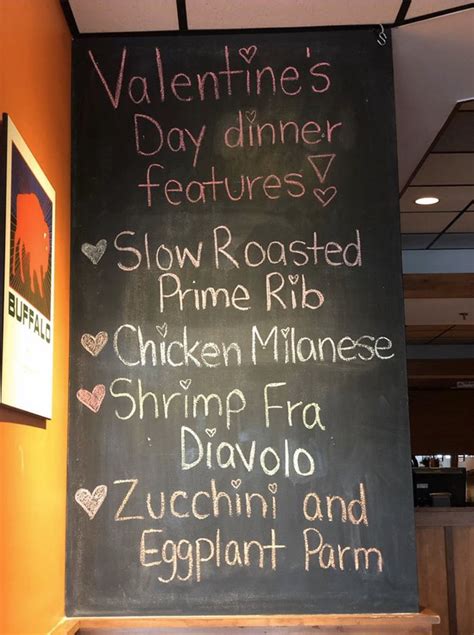 Valentine's
Day dinner
features!
Slow Roasted
Prime Rib
Chicken Milanese
Shrimp Fra
Diavolo
Zucchini and
Eggplant Parm
BUFFALO